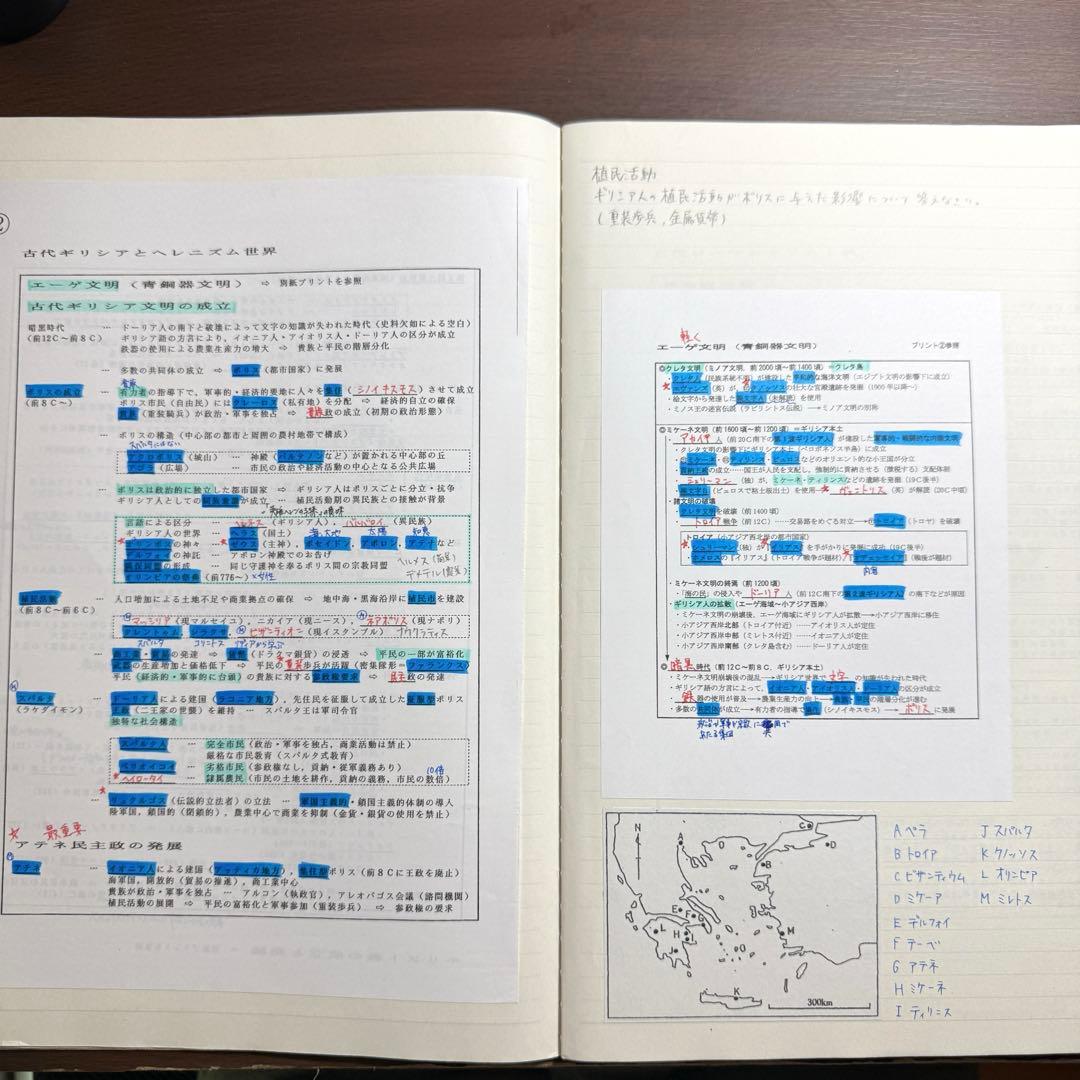 古代ギリシアとヘレニズム世界
エーゲ文明（青銅器文明） ⇨ 別紙プリントを参照
古代ギリシア文明の成立
暗黒時代 … ドーリア人の南下と破壊によって文字の知識が失われた時代（史料欠如による空白）
（前12C～前8C） ギリシア語の方言により，イオニア人・アイオリス人・ドーリア人の区分が成立
鉄器の使用による農業生産力の増大 ⇨ 貴族と平民の階層分化
… 多数の共同体の成立 ⇨ ポリス（都市国家）に発展
貴族
ポリスの成立 … 有力者の指導下で，軍事的・経済的要地に人々を集住（シノイキスモス）させて成立
（前8C～） ポリス市民（自由民）にはクレーロス（私有地）を分配 ⇨ 経済的自立の確保
貴族（重装騎兵）が政治・軍事を独占 ⇨ 貴族政の成立（初期の政治形態）
… ポリスの構造（中心部の都市と周囲の農村地帯で構成）
スパルタにはない
アクロポリス（城山） … 神殿（パルテノンなど）が置かれる中心部の丘
アゴラ（広場） … 市民の政治や経済活動の中心となる公共広場
… ポリスは政治的に独立した都市国家 ⇨ ギリシア人はポリスごとに分立・抗争
ギリシア人としての同族意識が成立 … 植民活動期の異民族との接触が背景
言語による区分 … ヘレネス（ギリシア人），バルバロイ（異民族）
ギリシア人の世界 … ヘラス（国土） 海,大地 太陽 知恵
オリンポスの神々 … ゼウス（主神），ポセイドン，アポロン，アテナなど
デルフォイの神託 … アポロン神殿でのお告げ ヘルメス（商業）
隣保同盟の形成 … 同じ守護神を奉るポリス間の宗教同盟 デメテル（農業）
オリンピアの祭典（前776～） ×女性
植民活動 … 人口増加による土地不足や商業拠点の確保 ⇨ 地中海・黒海沿岸に植民市を建設
（前8C～前6C）
マッサリア（現マルセイユ），ニカイア（現ニース），ネアポリス（現ナポリ）
タレントゥム，シラクサ，ビザンティオン（現イスタンブル） ナウクラティス
スパルタ コリントス リディアから学ぶ
… 商工業・貿易の発達 ⇨ 貨幣（ドラクマ銀貨）の浸透 ⇨ 平民の一部が富裕化
武器の生産増加と価格低下 ⇨ 平民の重装歩兵が活躍（密集隊形＝ファランクス）
平民（経済的・軍事的に台頭）の貴族に対する参政権要求 ⇨ 民主政の発達
スパルタ … ドーリア人による建国（ラコニア地方），先住民を征服して成立した征服型ポリス
（ラケダイモン） 王政（二王家の世襲）を維持 … スパルタ王は軍司令官
独特な社会構造
スパルタ人 … 完全市民（政治・軍事を独占，商業活動は禁止）
厳格な市民教育（スパルタ式教育）
ペリオイコイ … 劣格市民（参政権なし，貢納・従軍義務あり） 10倍
ヘイロータイ … 隷属農民（市民の土地を耕作，貢納の義務，市民の数倍）
… リュクルゴス（伝説的立法者）の立法 … 軍国主義的・鎖国主義的体制の導入
陸軍国，鎖国的（閉鎖的），農業中心で商業を抑制（金貨・銀貨の使用を禁止）
☆ 最重要
アテネ民主政の発展
アテネ … イオニア人による建国（アッティカ地方），集住型ポリス（前8Cに王政を廃止）
海軍国，開放的（貿易の推進），商工業中心
貴族が政治・軍事を独占 … アルコン（執政官），アレオパゴス会議（諮問機関）
植民活動の展開 ⇨ 平民の富裕化と軍事参加（重装歩兵） ⇨ 参政権の要求
植民活動
ギリシア人の植民活動がポリスに与えた影響について答えなさい。
（重装歩兵，金属貨幣）
軽く
エーゲ文明（青銅器文明） プリント②参照
◎クレタ文明（ミノア文明，前2000頃～前1400頃）＝クレタ島
・クレタ人（民族系統不明）が建設した平和的な海洋文明（エジプト文明の影響下に成立）
・エヴァンズ（英）が，クノッソスの壮大な宮殿遺跡を発掘（1900年以降～）
・絵文字から発達した線文字A（未解読）を使用
・ミノス王の迷宮伝説（ラビリントス伝説） ─→ミノア文明の別称
◎ミケーネ文明（前1600頃～前1200頃）＝ギリシア本土
・アカイア人（前20C南下の第1波ギリシア人）が建設した軍事的・戦闘的な内陸文明
・クレタ文明の影響下にギリシア本土（ペロポネソス半島）に成立
・ミケーネ・ティリンス・ピュロスなどのオリエント的な小王国が分立
・貢納王政の成立……国王が人民を支配し，強制的に貢納させる（徴税する）支配体制
・シュリーマン（独）が，ミケーネ・ティリンスなどの遺跡を発掘（19C後半）
・線文字B（ピュロスで粘土板出土）を使用─ヴェントリス（英）が解読（20C中頃）
・諸文明の破壊
クレタ文明を破壊（前1400頃）
トロイア戦争（前12C）……交易路をめぐる対立─→トロイア（トロヤ）を破壊
トロイア（小アジア西北岸の都市国家）
・シュリーマン（独）が『イリアス』を手がかりに発掘に成功（19C後半）
・ホメロスの『イリアス』（トロイア戦争が題材）『オデュッセイア』（戦後が題材）
内容
・ミケーネ文明の終焉（前1200頃）
・「海の民」の侵入やドーリア人（前12C南下の第2波ギリシア人）の南下などが原因
・ギリシア人の拡散（エーゲ海域～小アジア西岸）
・ミケーネ文明の崩壊後，エーゲ海域にギリシア人が拡散─→小アジア西岸に移住
・小アジア西岸北部（トロイア付近）……アイオリス人が定住
・小アジア西岸中部（ミレトス付近）……イオニア人が定住
・小アジア西岸南部（クレタ島含む）……ドーリア人が定住
◎暗黒時代（前12C～前8C，ギリシア本土）
・ミケーネ文明崩壊後の混乱─→ギリシア世界で文字の知識が失われた時代
・ギリシア語の方言によって，イオニア人・アイオリス人・ドーリア人の区分が成立
・鉄器の使用が普及─→農業生産力の向上─→貴族・平民の階層分化が進む
・多数の共同体が成立─→有力者の指導で集住（シノイキスモス）─→ポリスに発展
N
A
B
C
D
E
F
G
H
I
J
K
L
M
300km
A ペラ J スパルタ
B トロイア K クノッソス
C ビザンティウム L オリンピア
D ニケーア M ミレトス
E デルフォイ
F テーベ
G アテネ
H ミケーネ
I ティリンス